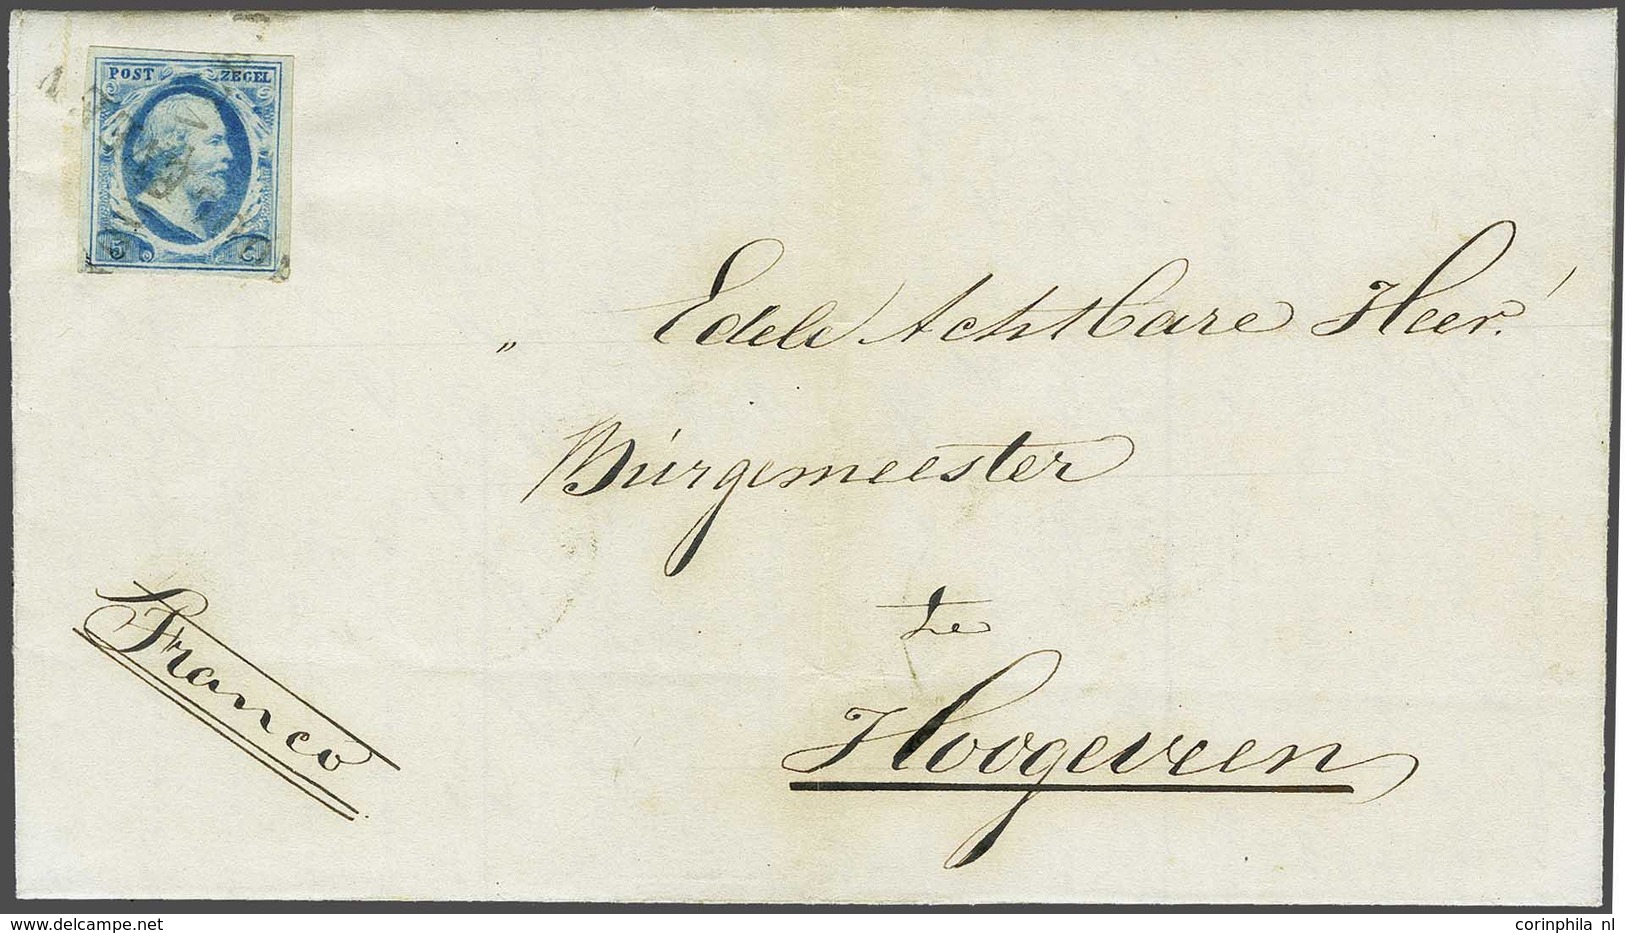 POST ZEGEL
5 C
„ Edele Achtbare Heer!
Burgemeester
te
Hoogeveen
Franco
www.delcampe.net
corinphila nl